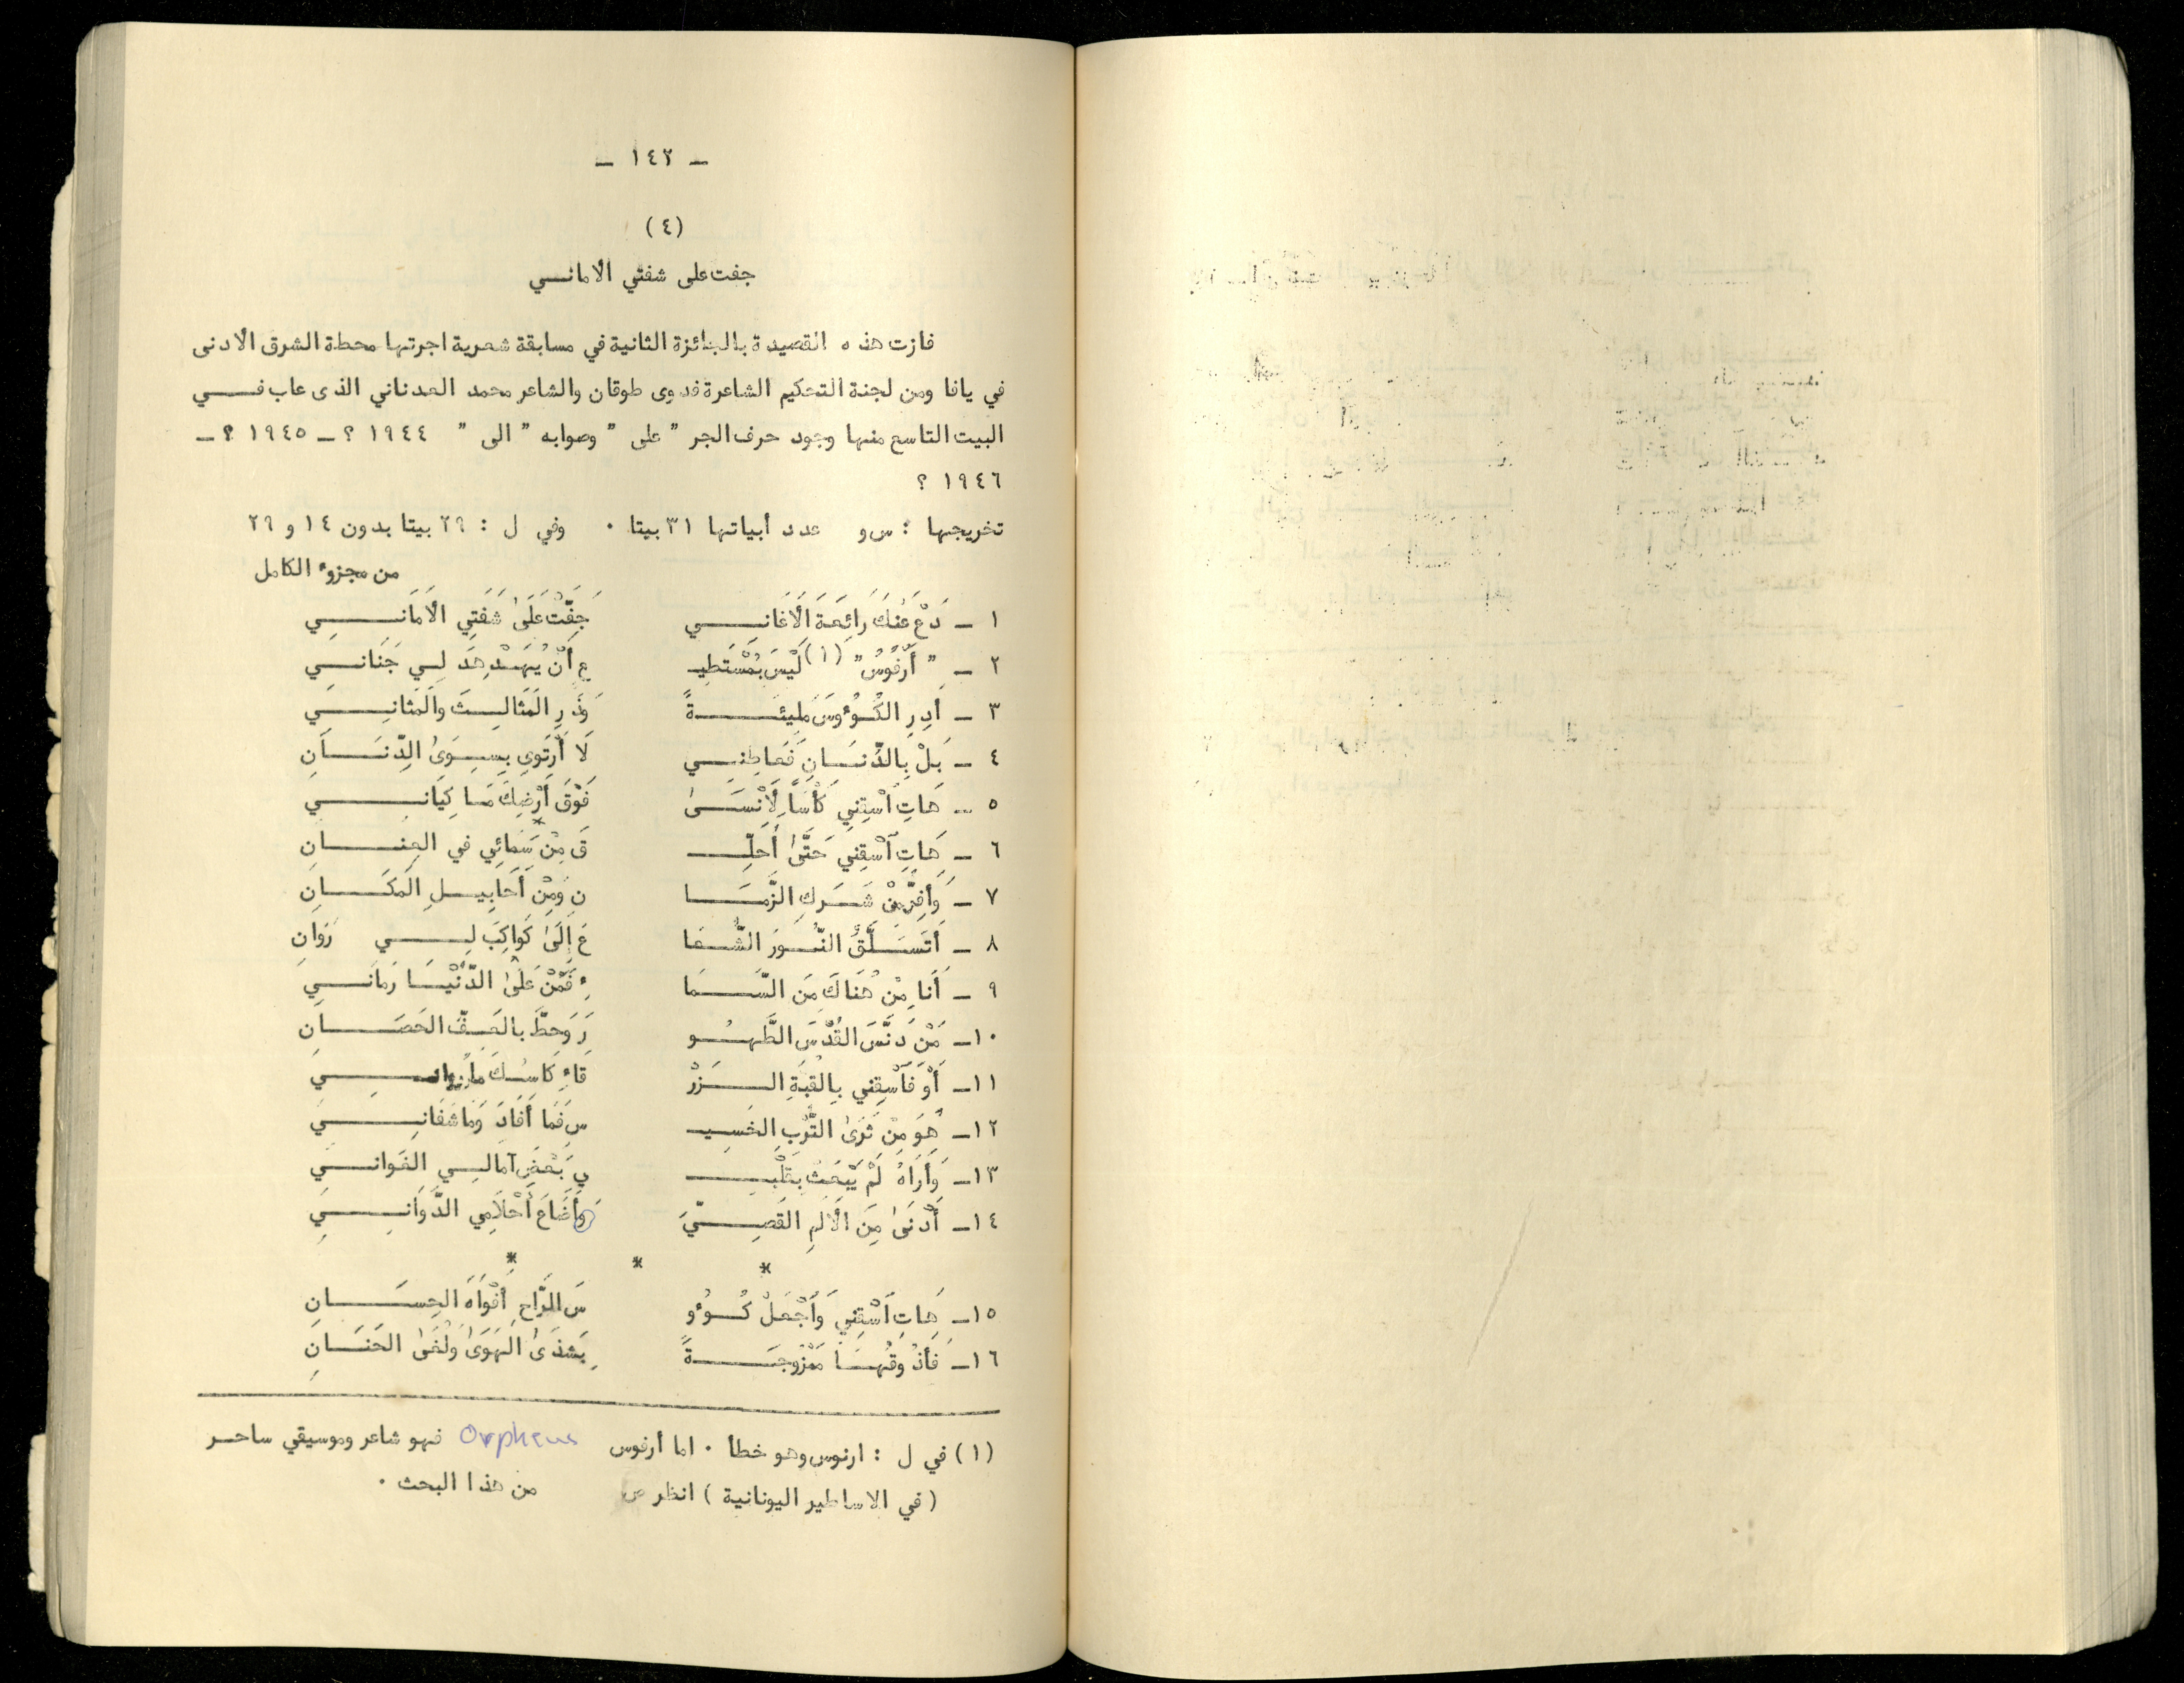 ـ ١٤٢ ـ
(٤)
جفت على شفتي الأماني
فازت هذه القصيدة بالجائزة الثانية في مسابقة شعرية اجرتها محطة الشرق الأدنى
في يافا ومن لجنة التحكيم الشاعرة فدوى طوقان والشاعر محمد العدناني الذى عاب في
البيت التاسع منها وجود حرف الجر " على " وصوابه " الى " ١٩٤٤ ؟ ـ ١٩٤٥ ؟ ـ
١٩٤٦ ؟
تخريجها : س و عدد أبياتها ٣١ بيتا ٠ وفي ل : ٢٩ بيتا بدون ١٤ و ٢٩
من مجزوء الكامل
١ ـ دَعْ عَنكَ رَائِعَةَ الَأغَانِي جَفَّتْ عَلَىٰ شَفَتِي الَأمَانِي
٢ ـ " أُرْفُوسُ " (١) لَيْسَ بِمُسْتَطِيـ ـعٍ أَنْ يُهَدْهِدَ لِي جَنَانِي
٣ ـ أَدِرِ الكُؤُوسَ مَلِيئَةً وَذَرِ المَثَالِثَ وَالمَثَانِي
٤ ـ بَلْ بِالدِّنَانِ فَعَاطِنِي لَا أَرتَوِي بِسِوَىٰ الدِّنَانِ
٥ ـ هَاتِ ٱسْقِنِي كَأْسًا لِأَنْسَىٰ فَوْقَ أَرْضِكَ مَا كِيَانِي
٦ ـ هَاتِ ٱسْقِنِي حَتَّىٰ أُحَلِّـ ـقَ مِنْ سَمَائِي في العِنَانِ
٧ ـ وَأَفِرَّ مِنْ شَرَكِ الزَّمَا نِ وَمِنْ أَحَابِيلِ المَكَانِ
٨ ـ أَتَسَلَّقُ النُّورَ الشُّعَا عَ إِلَىٰ كَوَاكِبَ لِي رَوَانِ
٩ ـ أَنَا مِنْ هُنَاكَ مِنَ السَّمَا ءِ فَمَنْ عَلَىٰ الدُّنْيَا رَمَانِي
١٠ـ مَنْ دَنَّسَ القُدْسَ الطَّهُو رَ وَحطَّ بِالعَفِّ الحَصَانِ
١١ـ أَوْ فَٱسْقِنِي بِالقُبَةِ الزَرْ قَاءِ كَاسُكَ مَا رَوَانِي
١٢ـ هُوَ مِنْ ثَرَىٰ التُّرْبِ الخَسِيـ ـسِ فَمَا أَفَادَ وَمَا شَفَانِي
١٣ـ وَأَرَاهُ لَمْ يَبْعَثْ بِقَلْبِـ ـي بَعْضَ آمَالِي الفَوَانِي
١٤ـ أَدْنَىٰ مِنَ الَألَمِ القَصِيِّ وَأَضَاعَ أَحْلَامِي الدَّوَانِي
* * *
١٥ـ هَاتِ ٱسْقِنِي وَٱجْعَلْ كُؤُو سَ الرَّاحِ أَفْوَاهَ الحِسَانِ
١٦ـ فَأَذُوقُهَا مَمْزُوجَةً بِشذَىٰ الهَوَىٰ وَلُغَىٰ الحَنَانِ
(١) في ل : ارنوس وهو خطأ ٠ اما أرفوس Orpheus فهو شاعر وموسيقي ساحر
(في الاساطير اليونانية) انظر ص من هذا البحث ٠